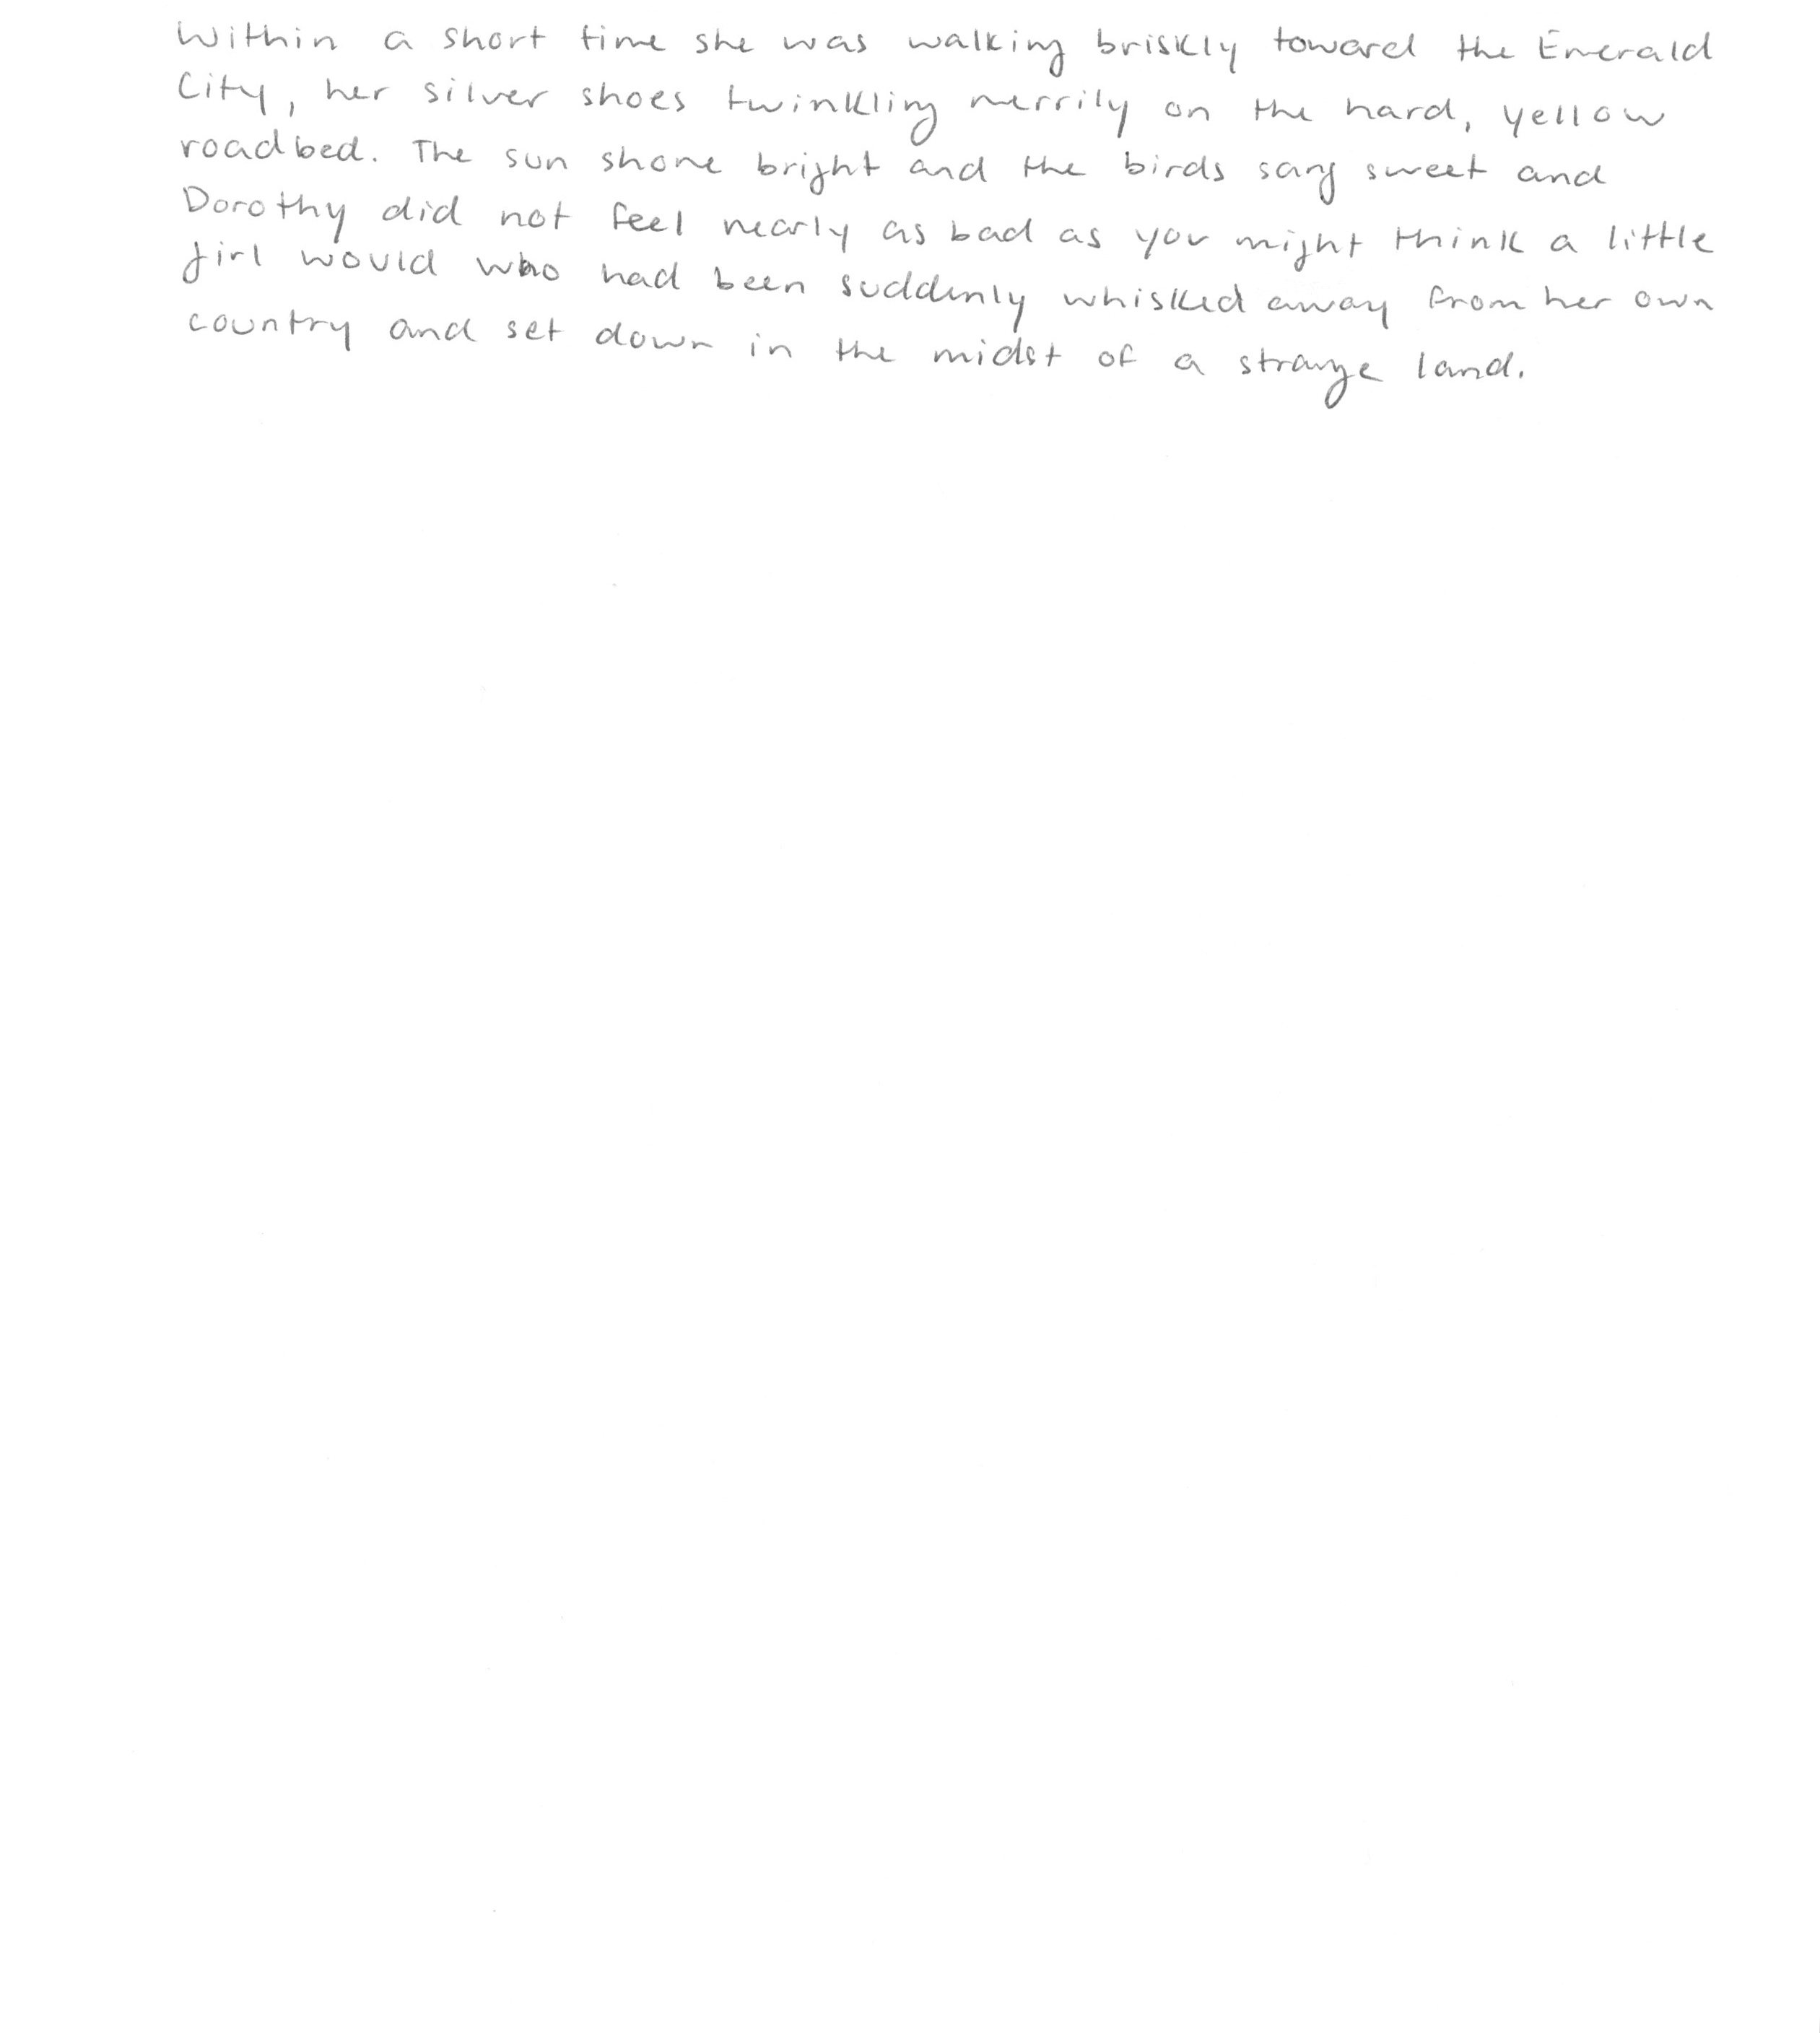 Within a short time she was walking briskly toward the Emerald
City, her silver shoes twinkling merrily on the hard, yellow
roadbed. The sun shone bright and the birds sang sweet and
Dorothy did not feel nearly as bad as you might think a little
girl would who had been suddenly whisked away from her own
country and set down in the midst of a strange land.